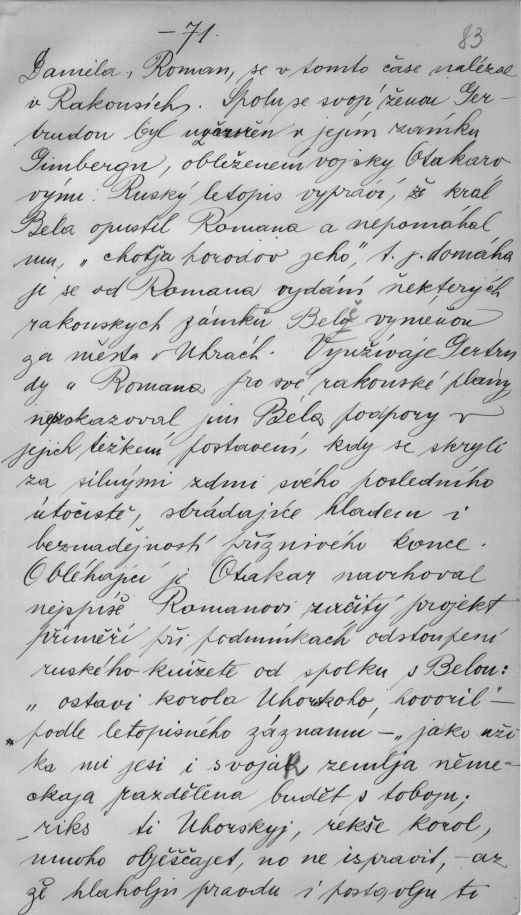 - 71.
83
Daniela, Roman, se v tomto čase nalézal
v Rakousích. Spolu se svojí ženou Ger-
trudou byl uzavřen v jejím zámku
Gimbergu, obleženem vojsky Otakaro
vými. Ruský letopis vypraví, že král
Bela opustil Romana a nepomáhal
mu, „chotja horodov jeho", t. j. domáha
je se od Romana vydání některých
rakouskych zámků Belě vymeňou
za města v Uhrách. Využívaje Gertru
dy a Romana pro své rakouské plány
neprokazoval jim Béla podpory v
jejich těžkem postavení, kdy se skryli
za silnými zdmi svého posledního
útočistě, strádajíce hladem i
beznadějností příznivého konce.
Obléhající je Otakar navrhoval
nejspíše Romanovi určitý projekt
příměří při podmínkách odstoupení
ruského knížete od spolku s Belou:
„ostavi korola Uhorskoho, hovoril" –
podle letopisného záznamu – „jako uži
ka mi jesi i svojak zemlja něme-
ckaja razdělena buděť s toboju;
riks ti Uhorskyj, rekše korol,
mnoho obješčajet, no ne ispravit, – az
že hlaholju pravdu i postavlju ti